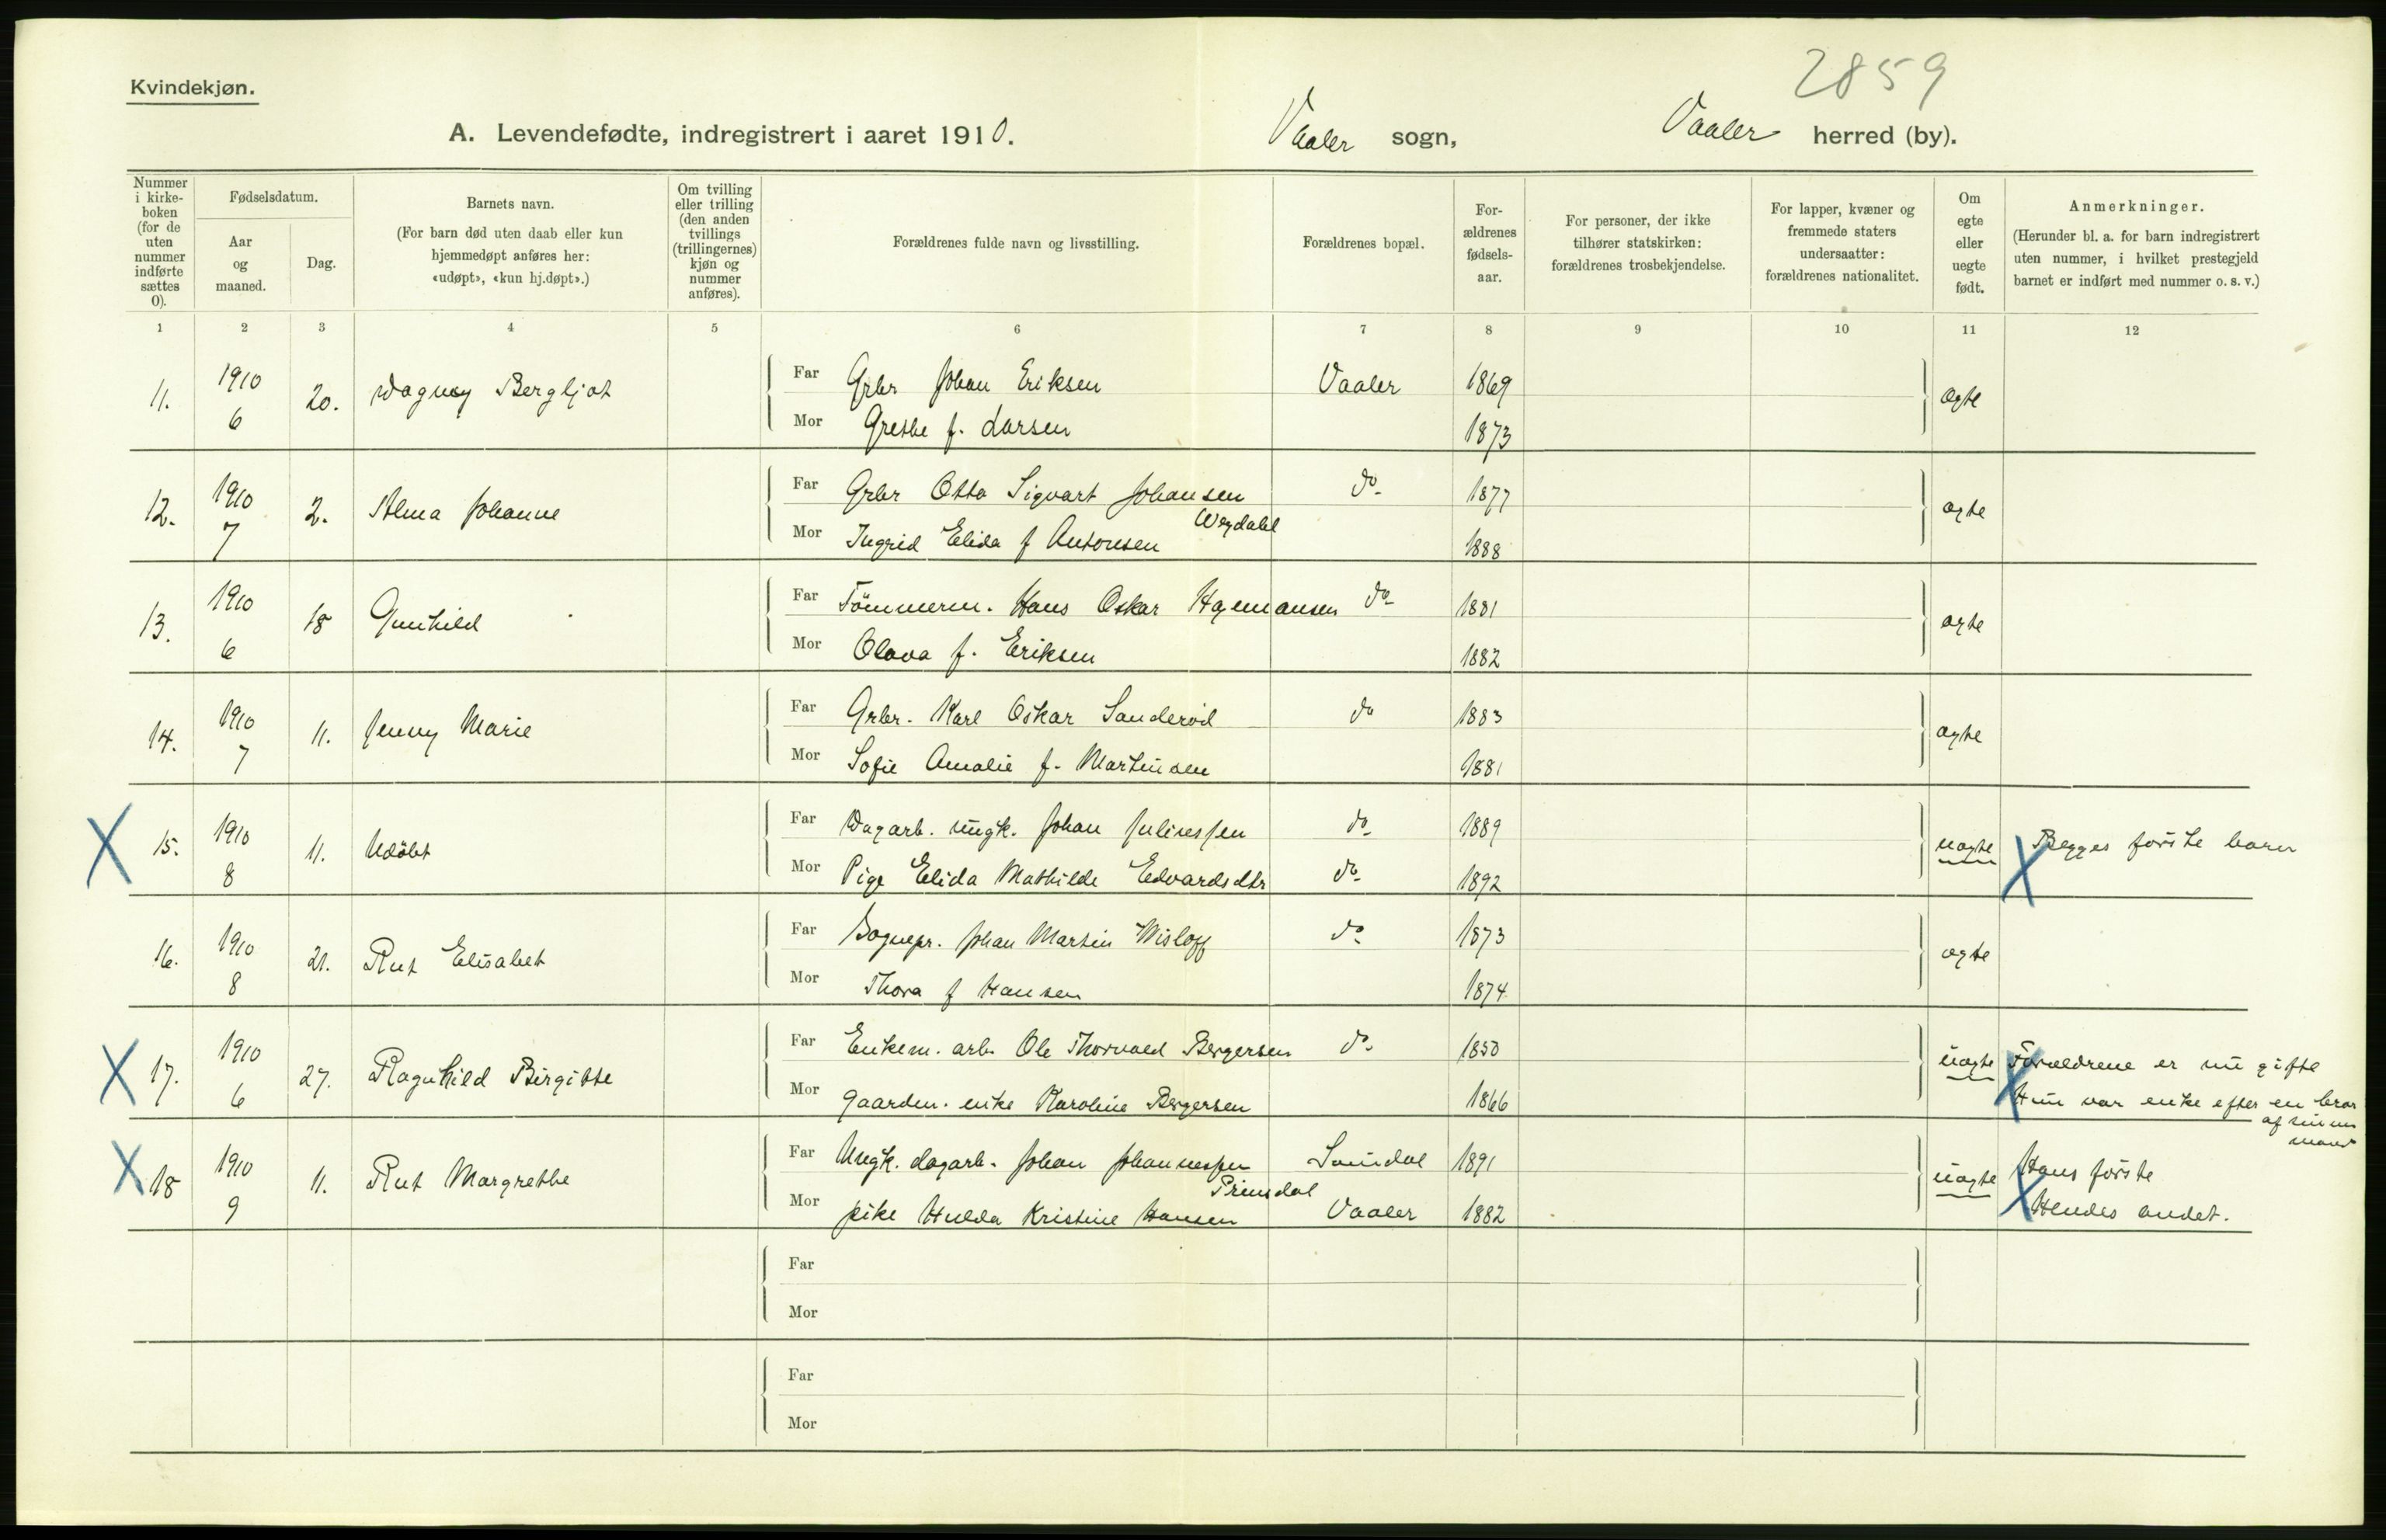 2859
Kvindekjøn.
A. Levendefødte, indregistrert i aaret 1910. Vaaler sogn, Vaaler herred (by).
Nummer i kirke-boken (for de uten nummer indførte sættes 0).
Fødselsdatum.
Aar og maaned.
Dag.
Barnets navn.
(For barn død uten daab eller kun hjemmedøpt anføres her: «udøpt», «kun hj.døpt».)
Om tvilling eller trilling (den anden tvillings (trillingernes) kjøn og nummer anføres).
Forældrenes fulde navn og livsstilling.
Forældrenes bopæl.
For-ældrenes fødsels-aar.
For personer, der ikke tilhører statskirken: forældrenes trosbekjendelse.
For lapper, kvæner og fremmede staters undersaatter: forældrenes nationalitet.
Om egte eller uegte født.
Anmerkninger.
(Herunder bl. a. for barn indregistrert uten nummer, i hvilket prestegjeld barnet er indført med nummer o. s. v.)
1 2 3 4 5 6 7 8 9 10 11 12
11. 1910 6 20. Dagny Bergljot
Far Grbr Johan Eriksen Vaaler 1869 ægte
Mor Grethe f. Larsen 1873
12. 1910 7 2. Alma Johanne
Far Grbr Otto Sigvart Johansen do 1877 ægte
Mor Ingrid Elida f Antonsen 1888
13. 1910 6 18 Gunhild
Far Tömmerm. Hans Oskar Hagemansen do 1881 ægte
Mor Olava f. Eriksen 1882
14. 1910 7 11. Jenny Marie
Far Grbr. Karl Oskar Sanderöd do 1883 ægte
Mor Sofie Amalie f. Martinsen 1881
X 15. 1910 8 11. Udöbt
Far Dagarb. ungk. Johan Juliussen do 1889 uægte X Begges förste barn
Mor Pige Elida Mathilde Edvardsdtr do 1892
16. 1910 8 21. Rut Elisabet
Far Sognepr. Johan Martin Wisloff do 1873 ægte
Mor Thora f Hansen 1874
X 17. 1910 6 27. Ragnhild Birgitte
Far Enkem. arb. Ole Thorvald Bergersen do 1850 uægte X Forældrene er nu gifte
Mor Gaardm. enke Karoline Bergersen 1866 Hun var enke efter en bror
af sin nu
mand
X 18 1910 9 11. Rut Margrethe
Far Ungk. dagarb. Johan Johannessen 1891 uægte X Hans förste
Prinsdal
Mor pike Hulda Kristine Hansen Vaaler 1882 Hendes andet.
Far
Mor
Far
Mor